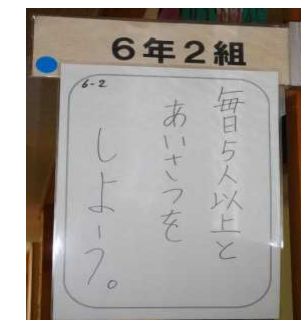 6年2組
6-2
毎日5人以上と
あいさつを
しよう。